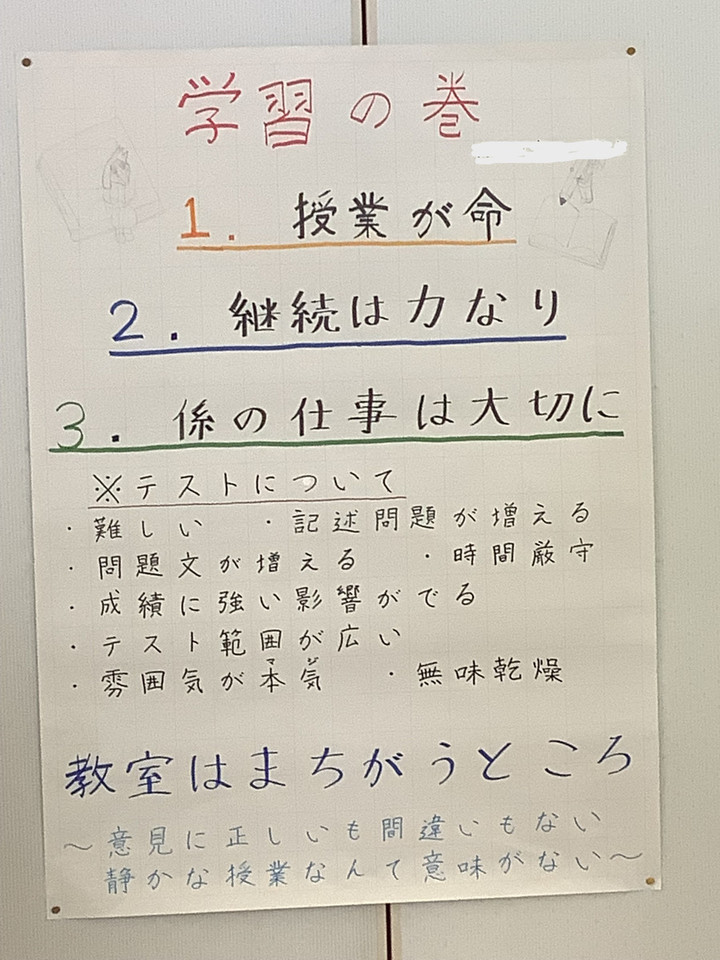 学習の巻
1. 授業が命
2. 継続は力なり
3. 係の仕事は大切に
※テストについて
・難しい ・記述問題が増える
・問題文が増える ・時間厳守
・成績に強い影響がでる
・テスト範囲が広い
・雰囲気が本気 ・無味乾燥
マジ
教室はまちがうところ
～意見に正しいも間違いもない
静かな授業なんて意味がない～